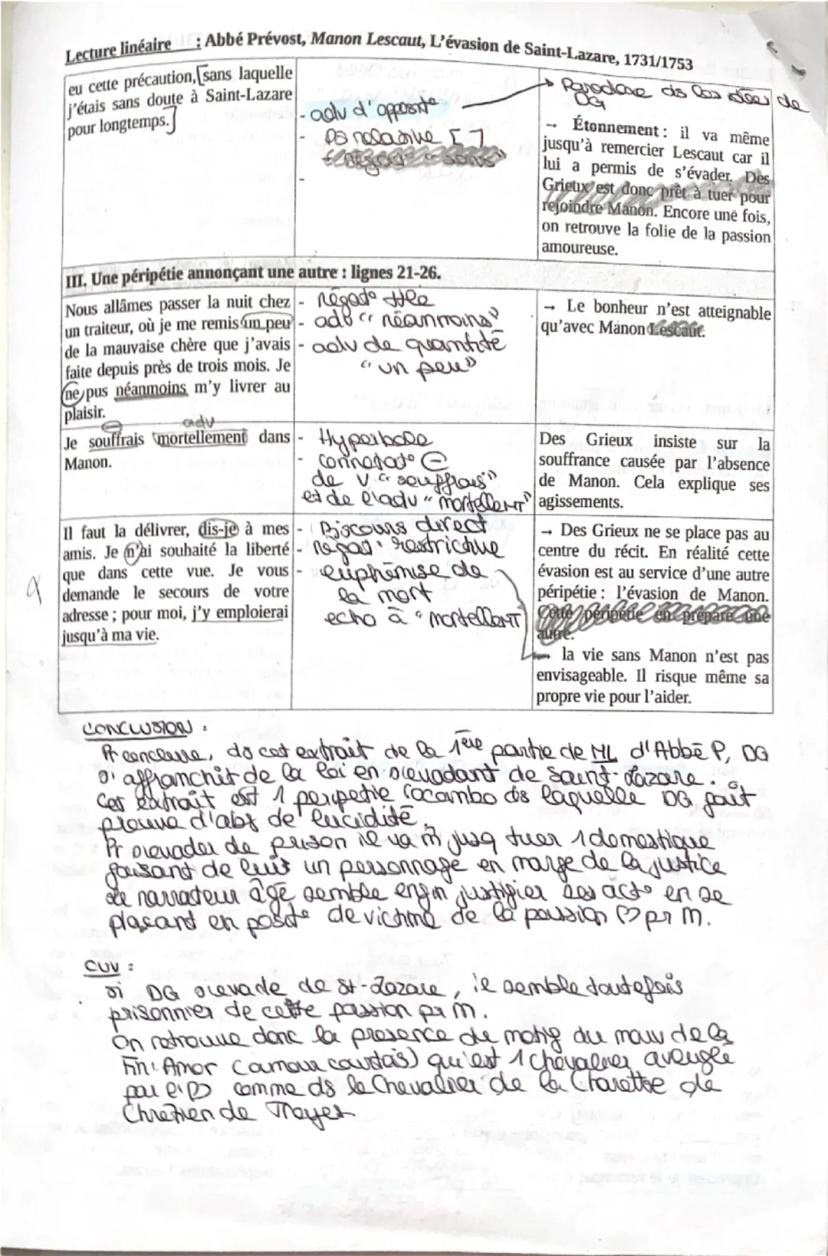 Lecture linéaire : Abbé Prévost, Manon Lescaut, L'évasion de Saint-Lazare, 1731/1753
eu cette précaution, [sans laquelle
j'étais sans doute à Saint-Lazare
pour longtemps.]
- adv d'opposito
- ps relative [ ]
-
→ Paradoxe ds les idées de
DG
→ Étonnement : il va même
jusqu'à remercier Lescaut car il
lui a permis de s'évader. Des
Grieux est donc prêt à tuer pour
rejoindre Manon. Encore une fois,
on retrouve la folie de la passion
amoureuse.
III. Une péripétie annonçant une autre : lignes 21-26.
Nous allâmes passer la nuit chez
un traiteur, où je me remis un peu
de la mauvaise chère que j'avais
faite depuis près de trois mois. Je
ne pus néanmoins m'y livrer au
plaisir.
- négato
- adv "néanmoins"
- adv de quantité
"un peu"
→ Le bonheur n'est atteignable
qu'avec Manon Lescaut.
adv
Je souffrais mortellement dans
Manon.
- Hyperbole
- connotato ⊖
de v "souffrais"
et de l'adv "mortellemT"
Des Grieux insiste sur la
souffrance causée par l'absence
de Manon. Cela explique ses
agissements.
Il faut la délivrer, dis-je à mes
amis. Je n'ai souhaité la liberté
que dans cette vue. Je vous
demande le secours de votre
adresse ; pour moi, j'y emploierai
jusqu'à ma vie.
- Discours direct
- négato restrictive
- euphémise de
la mort
echo à "mortellemT
→ Des Grieux ne se place pas au
centre du récit. En réalité cette
évasion est au service d'une autre
péripétie : l'évasion de Manon.
Cette péripétie en prépare une
autre.
→ la vie sans Manon n'est pas
envisageable. Il risque même sa
propre vie pour l'aider.
CONCLUSION :
Pr conclure, ds cet extrait de la 1ère partie de ML d'Abbé P, DG
s'affranchit de la loi en s'evadant de Saint-Lazare.
Cet extrait est 1 peripetie rocambo ds laquelle DG fait
preuve d'abs de lucidité.
Pr s'evader de prison il va m̂ jusq tuer 1 domestique
faisant de lui un personnage en marge de la justice
Le narrateur âgé semble enfin justifier ses acto en se
plaçant en posito de victime de la passion ♡ pr M.
CUV :
Si DG s'evade de St-Lazare, il semble toutefois
prisonnier de cette passion pr M.
On retrouve donc la presence du motif du maux de la
Fin'Amor (amour courtois) qu'est 1 chevalier aveuglé
par l'♡ comme ds le Chevalier de la Charette de
Chrétien de Troyes